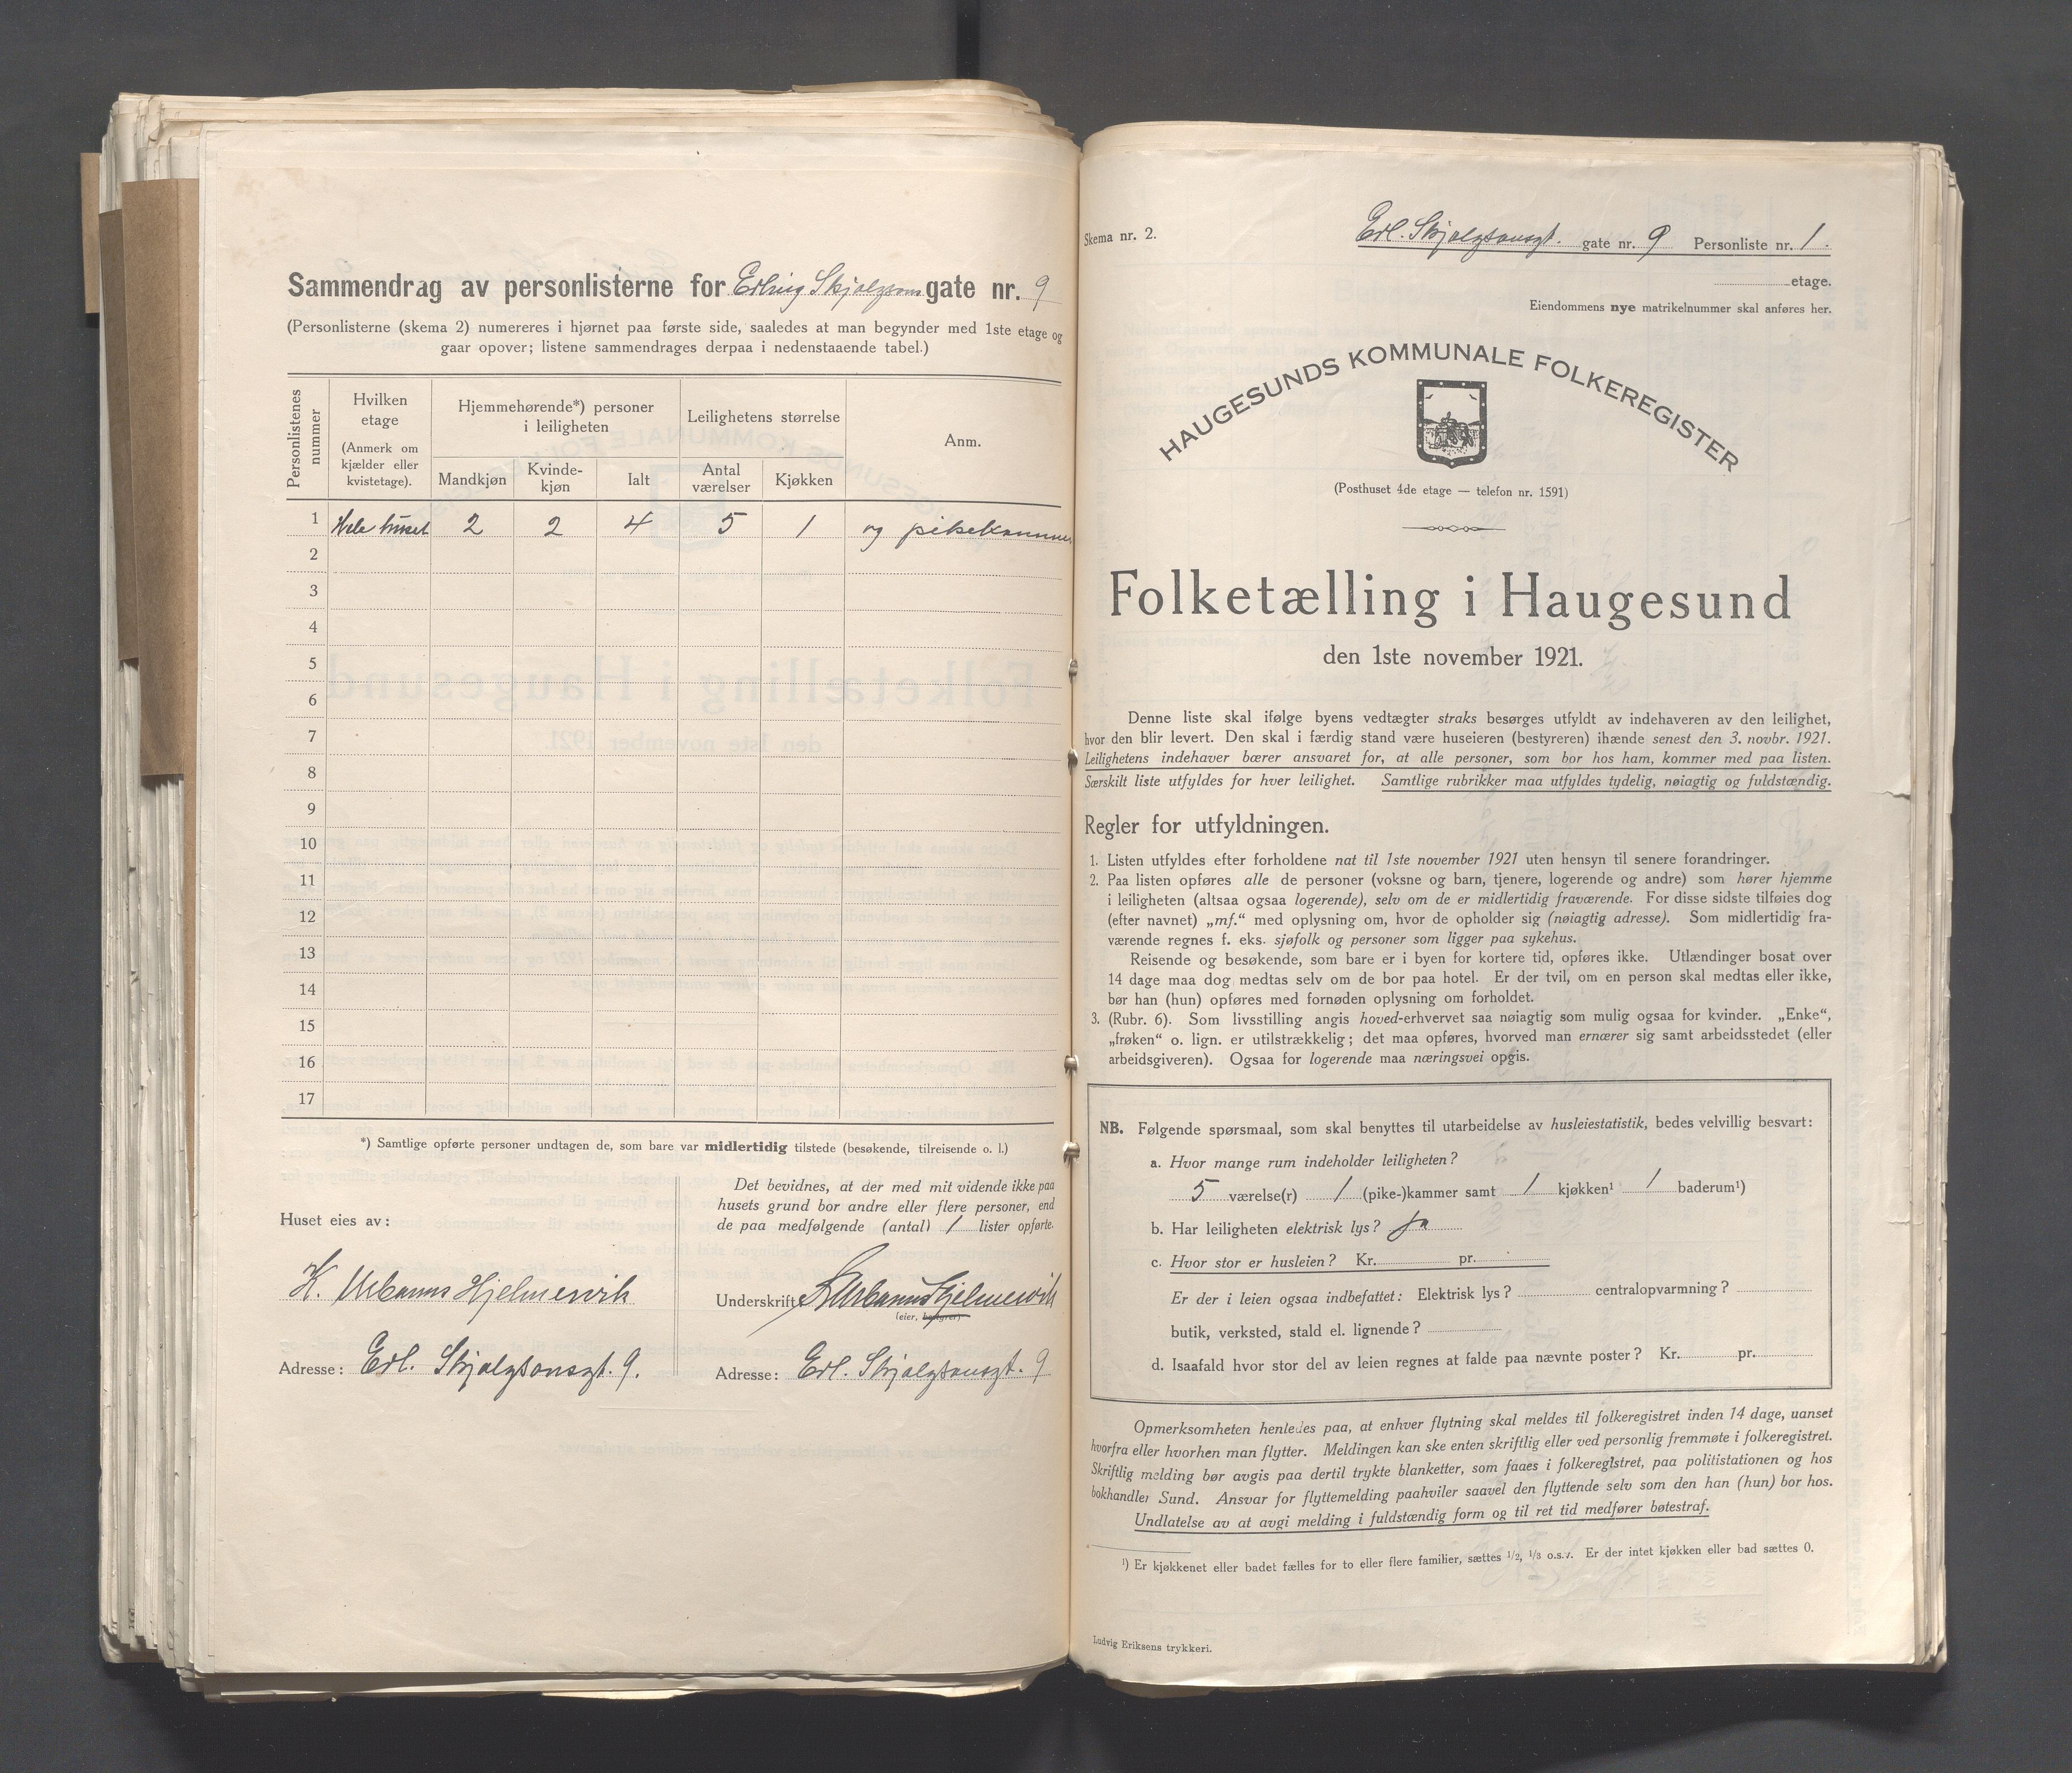 Sammendrag av personlisterne for Erling Skjalgsons gate nr. 9
(Personlisterne (skema 2) numereres i hjørnet paa første side, saaledes at man begynder med 1ste etage og
gaar opover; listene sammendrages derpaa i nedenstaaende tabel.)
Personlistenes nummer
Hvilken etage
(Anmerk om kjælder eller kvistetage).
Hjemmehørende*) personer i leiligheten
Mandkjøn
Kvinde-kjøn
Ialt
Leilighetens størrelse
Antal værelser
Kjøkken
Anm.
1 Hele huset 2 2 4 5 1 og pikekammer
2
3
4
5
6
7
8
9
10
11
12
13
14
15
16
17
*) Samtlige opførte personer undtagen de, som bare var midlertidig tilstede (besøkende, tilreisende o. l.)
Huset eies av:
K. Urbanus Hjelmervik
Adresse: Erl. Skjalgsonsgt. 9.
Det bevidnes, at der med mit vidende ikke paa
husets grund bor andre eller flere personer, end
de paa medfølgende (antal) 1 lister opførte.
Underskrift K Urbanus Hjelmervik
(eier, bestyrer)
Adresse: Erl. Skjalgsonsgt. 9
Skema nr. 2.
Erl. Skjalgsonsgt. gate nr. 9 Personliste nr. 1.
etage.
Eiendommens nye matrikelnummer skal anføres her.
HAUGESUNDS KOMMUNALE FOLKEREGISTER
(Posthuset 4de etage — telefon nr. 1591)
Folketælling i Haugesund
den 1ste november 1921.
Denne liste skal ifølge byens vedtægter straks besørges utfyldt av indehaveren av den leilighet,
hvor den blir levert. Den skal i færdig stand være huseieren (bestyreren) ihænde senest den 3. novbr. 1921.
Leilighetens indehaver bærer ansvaret for, at alle personer, som bor hos ham, kommer med paa listen.
Særskilt liste utfyldes for hver leilighet. Samtlige rubrikker maa utfyldes tydelig, nøiagtig og fuldstændig.
Regler for utfyldningen.
1. Listen utfyldes efter forholdene nat til 1ste november 1921 uten hensyn til senere forandringer.
2. Paa listen opføres alle de personer (voksne og barn, tjenere, logerende og andre) som hører hjemme
i leiligheten (altsaa ogsaa logerende), selv om de er midlertidig fraværende. For disse sidste tilføies dog
(efter navnet) „mf.“ med oplysning om, hvor de opholder sig (nøiagtig adresse). Som midlertidig fra-
værende regnes f. eks. sjøfolk og personer som ligger paa sykehus.
Reisende og besøkende, som bare er i byen for kortere tid, opføres ikke. Utlændinger bosat over
14 dage maa dog medtas selv om de bor paa hotel. Er der tvil, om en person skal medtas eller ikke,
bør han (hun) opføres med fornøden oplysning om forholdet.
3. (Rubr. 6). Som livsstilling angis hoved-erhvervet saa nøiagtig som mulig ogsaa for kvinder. „Enke“,
„frøken“ o. lign. er utilstrækkelig; det maa opføres, hvorved man ernærer sig samt arbeidsstedet (eller
arbeidsgiveren). Ogsaa for logerende maa næringsvei opgis.
NB. Følgende spørsmaal, som skal benyttes til utarbeidelse av husleiestatistik, bedes velvillig besvart:
a. Hvor mange rum indeholder leiligheten?
5 værelse(r) 1 (pike-)kammer samt 1 kjøkken¹ 1 baderum¹)
b. Har leiligheten elektrisk lys? Ja
c. Hvor stor er husleien? Kr. pr.
Er der i leien ogsaa indbefattet: Elektrisk lys? centralopvarmning?
butik, verksted, stald el. lignende?
d. Isaafald hvor stor del av leien regnes at falde paa nævnte poster? Kr. pr.
Opmerksomheten henledes paa, at enhver flytning skal meldes til folkeregistret inden 14 dage, uanset
hvorfra eller hvorhen man flytter. Meldingen kan ske enten skriftlig eller ved personlig fremmøte i folkeregistret.
Skriftlig melding bør avgis paa dertil trykte blanketter, som faaes i folkeregistret, paa politistationen og hos
bokhandler Sund. Ansvar for flyttemelding paahviler saavel den flyttende selv som den han (hun) bor hos.
Undlatelse av at avgi melding i fuldstændig form og til ret tid medfører bøtestraf.
¹) Er kjøkkenet eller badet fælles for to eller flere familier, sættes 1/2, 1/3 o.s.v. Er der intet kjøkken eller bad sættes 0.
Ludvig Eriksens trykkeri.